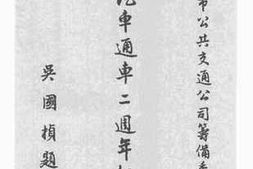 市公共交通公司籌備委
汽車通車二週年紀
吳國楨題